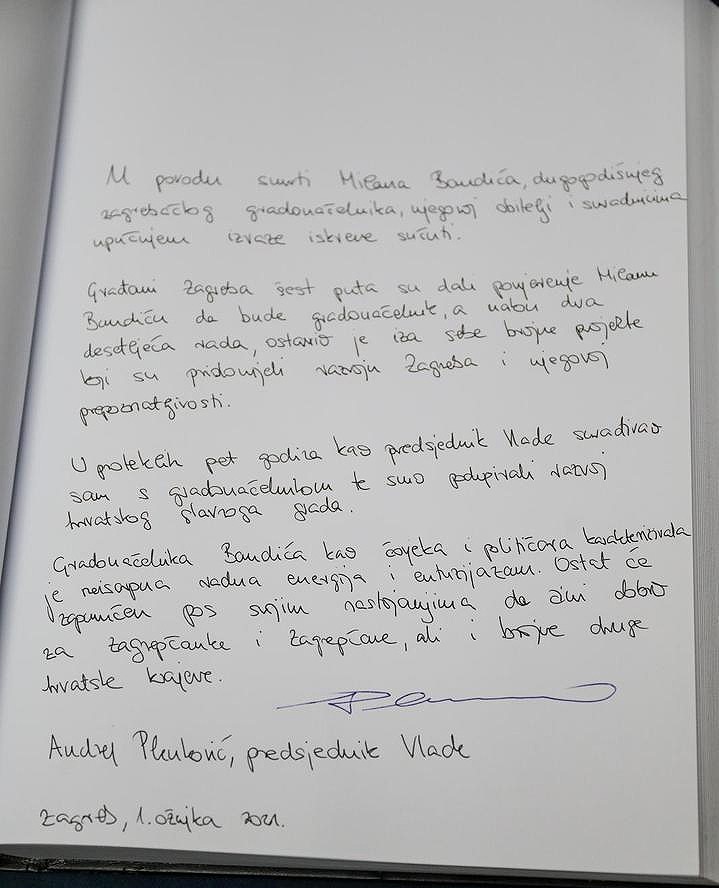 U povodu smrti Milana Bandića, dugogodišnjeg
zagrebačkog gradonačelnika, njegovoj obitelji i suradnicima
upućujem izraze iskrene sućuti.
Građani Zagreba šest puta su dali povjerenje Milanu
Bandiću da bude gradonačelnik, a nakon dva
desetljeća rada, ostavio je iza sebe brojne projekte
koji su pridonijeli razvoju Zagreba i njegovoj
prepoznatljivosti.
U proteklih pet godina kao predsjednik Vlade surađivao
sam s gradonačelnikom te smo podupirali razvoj
hrvatskog glavnoga grada.
Gradonačelnika Bandića kao čovjeka i političara karakterizirala
je neiscrpna radna energija i entuzijazam. Ostat će
zapamćen po svojim nastojanjima da čini dobro
za Zagrepčanke i Zagrepčane, ali i brojne druge
hrvatske krajeve.
Andrej Plenković, predsjednik Vlade
Zagreb, 1. ožujka 2021.